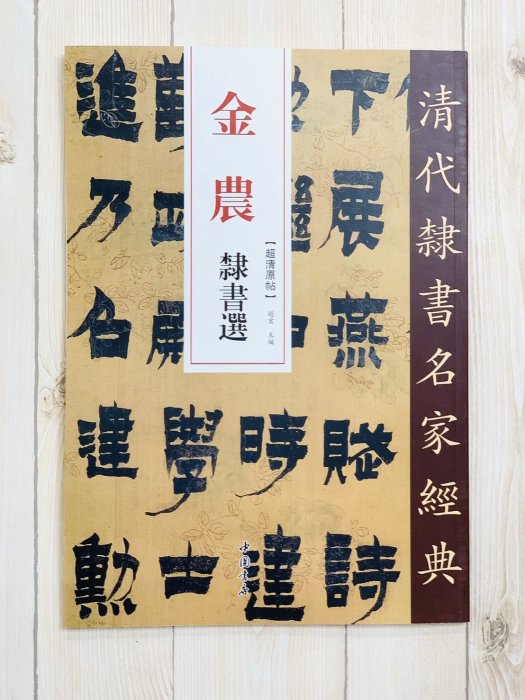 清代隸書名家經典
金農
隸書選
【超清原帖】
趙宏 主編
下展燕賦詩
時達
學士
進乃名建勲
中国書店